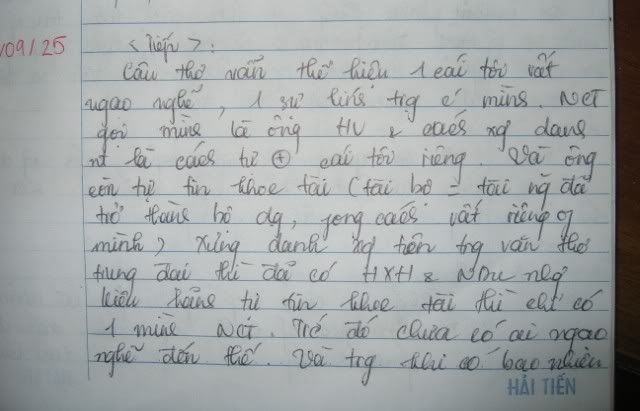 /09/25
<Tiếp>:
Câu thơ vẫn thể hiện 1 cái tôi rất
ngạo nghễ, 1 sự  trg é mình. NCT
gọi mình là ông HV & cách xg danh
nt là cách tự ⊕ cái tôi riêng. Và ông
còn tự tin khoe tài (tài bộ = tài ng đã
trở thành bộ dạng, phong cách rất riêng of
mình) Xưng danh xg tên trg văn thơ
trung đại thì đã có HXH & NDu nhg
kiểu  tự tin khoe tài thì chỉ có
1 mình NCT. Trc đó chưa có ai ngạo
nghễ đến thế. Và trg khi có bao nhiêu
HẢI TIẾN